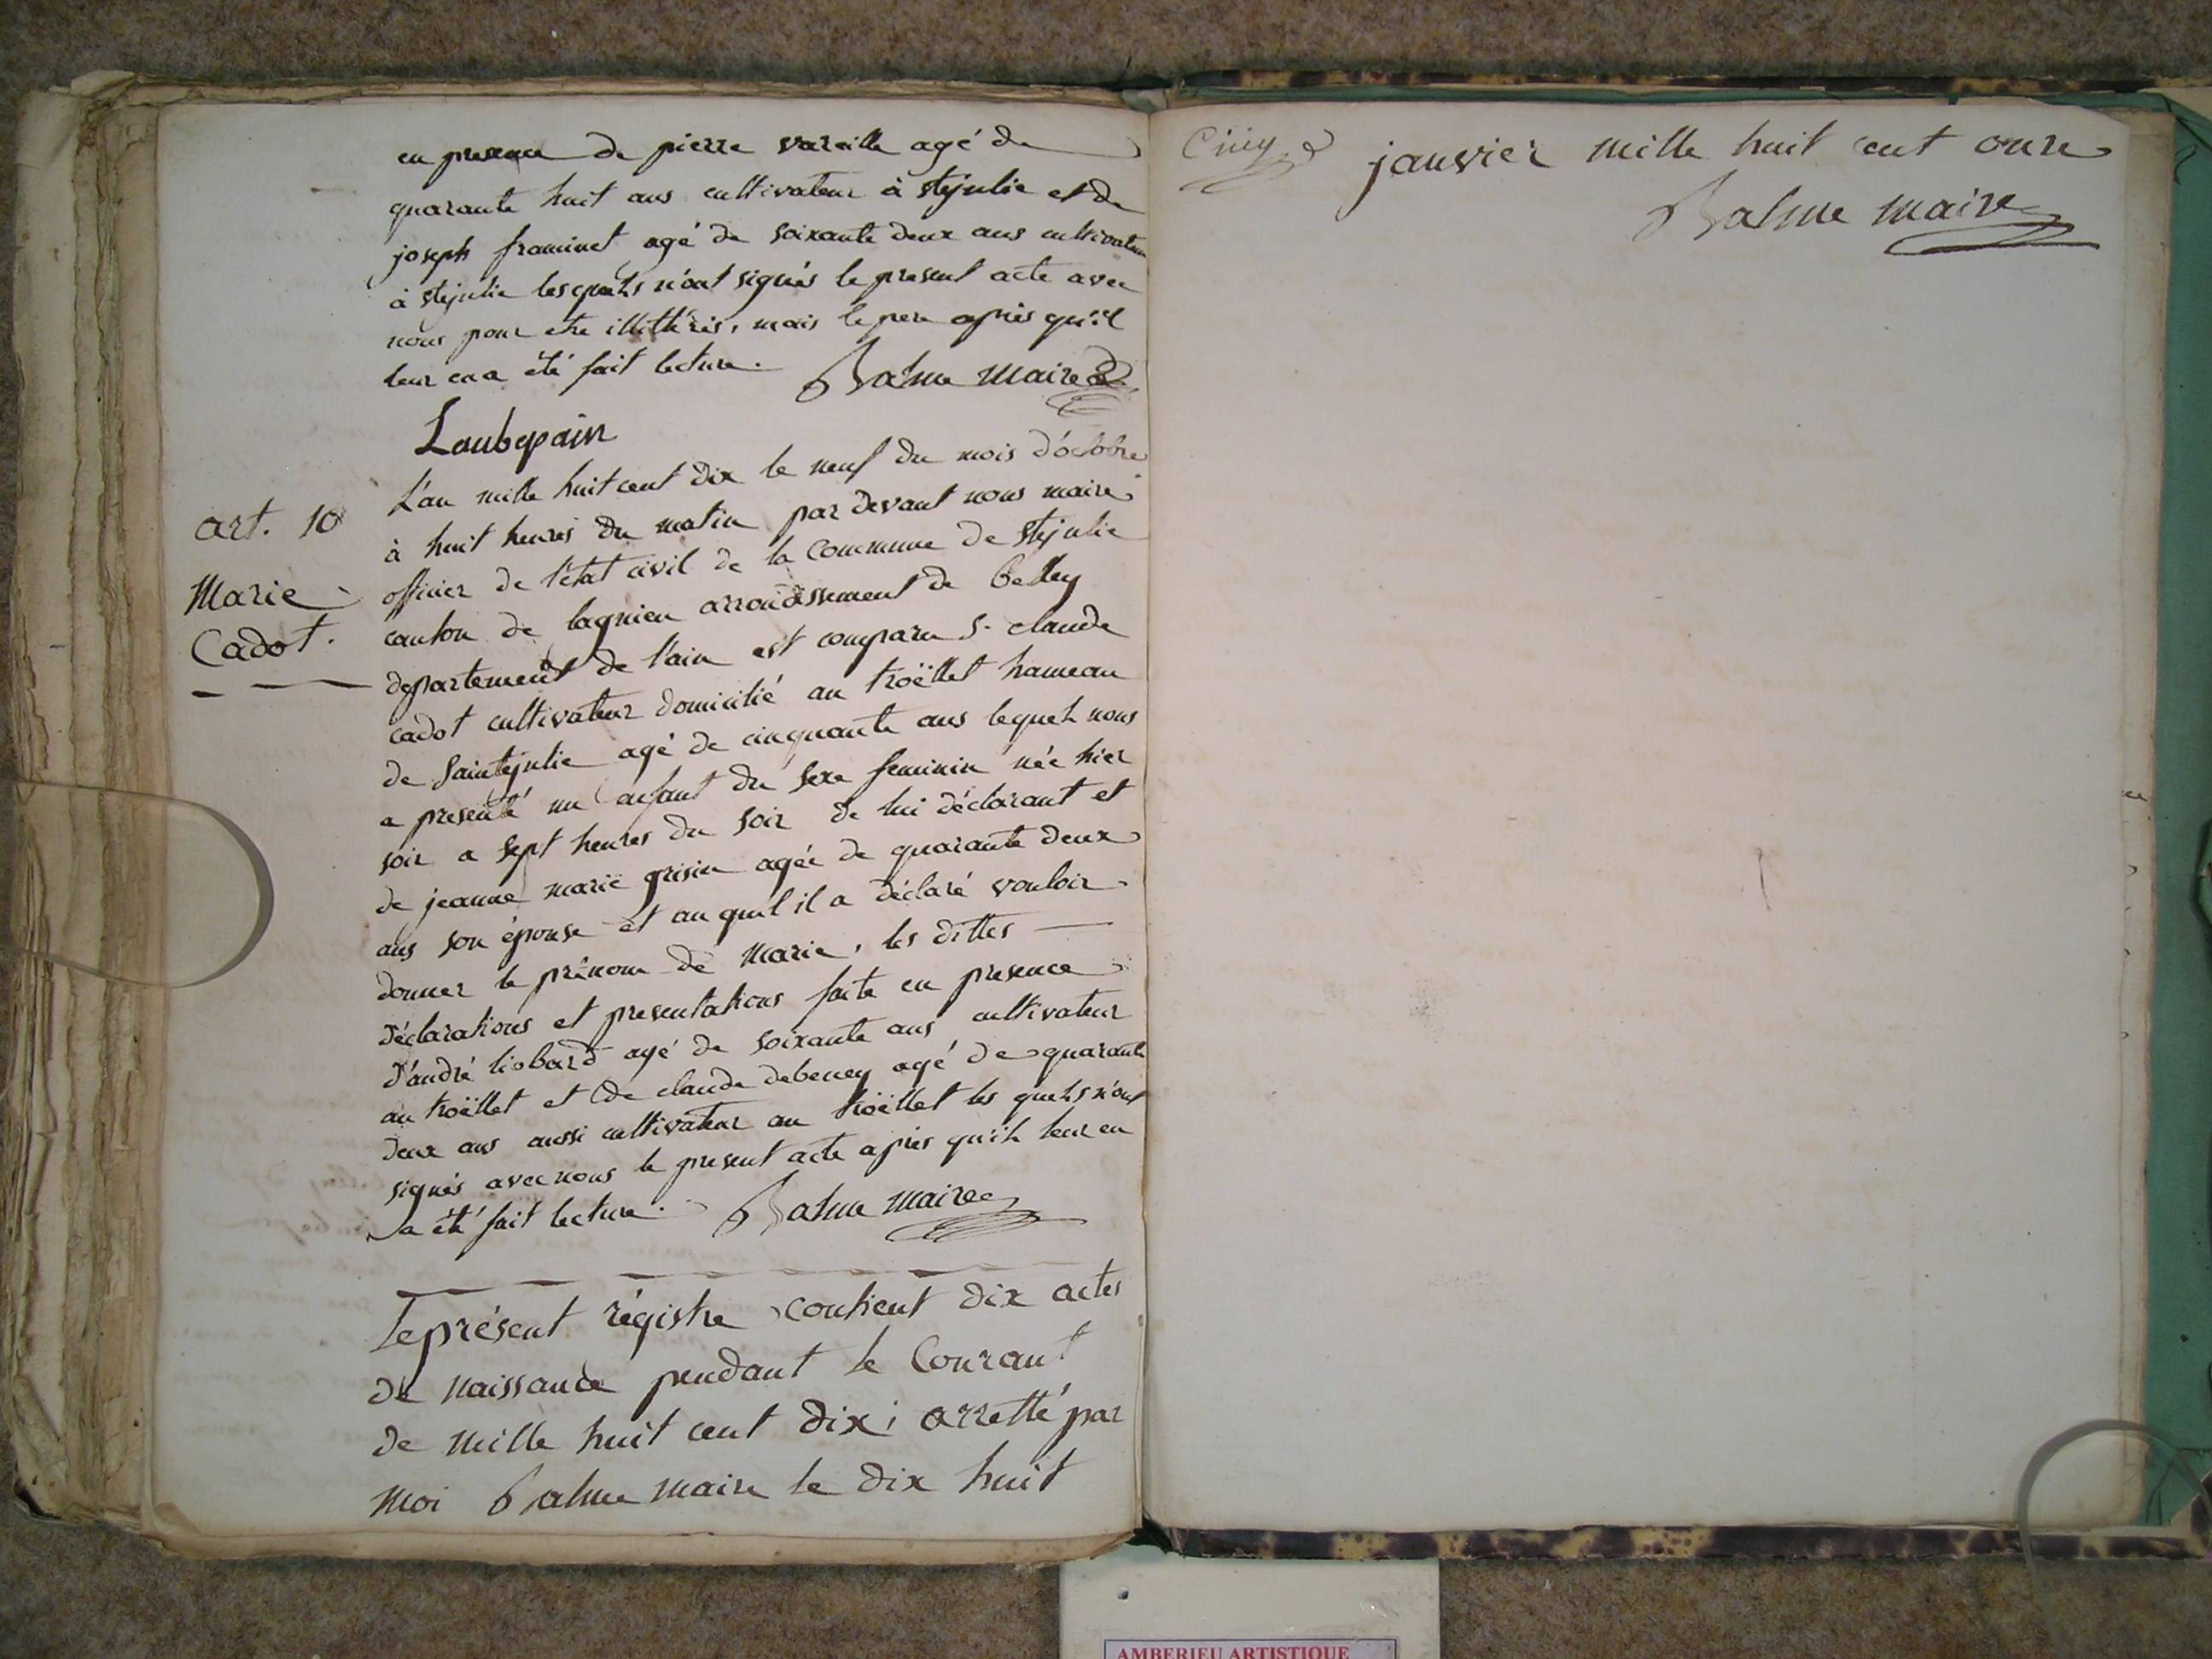 en presence de pierre vareille agé de
quarante huit ans cultivateur à stejulie et de
joseph framinet agé de soixante deux ans cultivateur
à stejulie lesquels n'ont signés le present acte avec
nous pour etre illitteris, mais le pere après qu'il
leur en a été fait lecture. Balme maire
Laubepain
art. 10
Marie
Cadot.
L'an mille huit cent dix le neuf du mois d'octobre
à huit heures du matin par devant nous maire
officier de l'état civil de la Commune de stejulie
canton de lagnieu arrondissement de Belley
departement de l'ain est comparu s. claude
cadot cultivateur domicilié au troëllet hameau
de saintejulie agé de cinquante ans lequel nous
a presenté un enfant du sexe feminin née hier
soir a sept heures du soir de lui déclarant et
de jeanne marie grisin agée de quarante deux
ans son épouse et au quel il a déclaré vouloir
donner le prénom de Marie, les dittes
déclarations et presentations faite en presence
d'andré liobard agé de soixante ans cultivateur
au troëllet et de claude debeney agé de quarante
deux ans aussi cultivateur au troëllet les quels n'ont
signés avec nous le present acte après qu'il leur en
a été fait lecture. Balme maire
Le présent régistre contient dix actes
de naissance pendant le Courant
de mille huit cent dix; arretté par
moi Balme maire le dix huit
janvier mille huit cent onze
Balme maire
AMBERIEU ARTISTIQUE